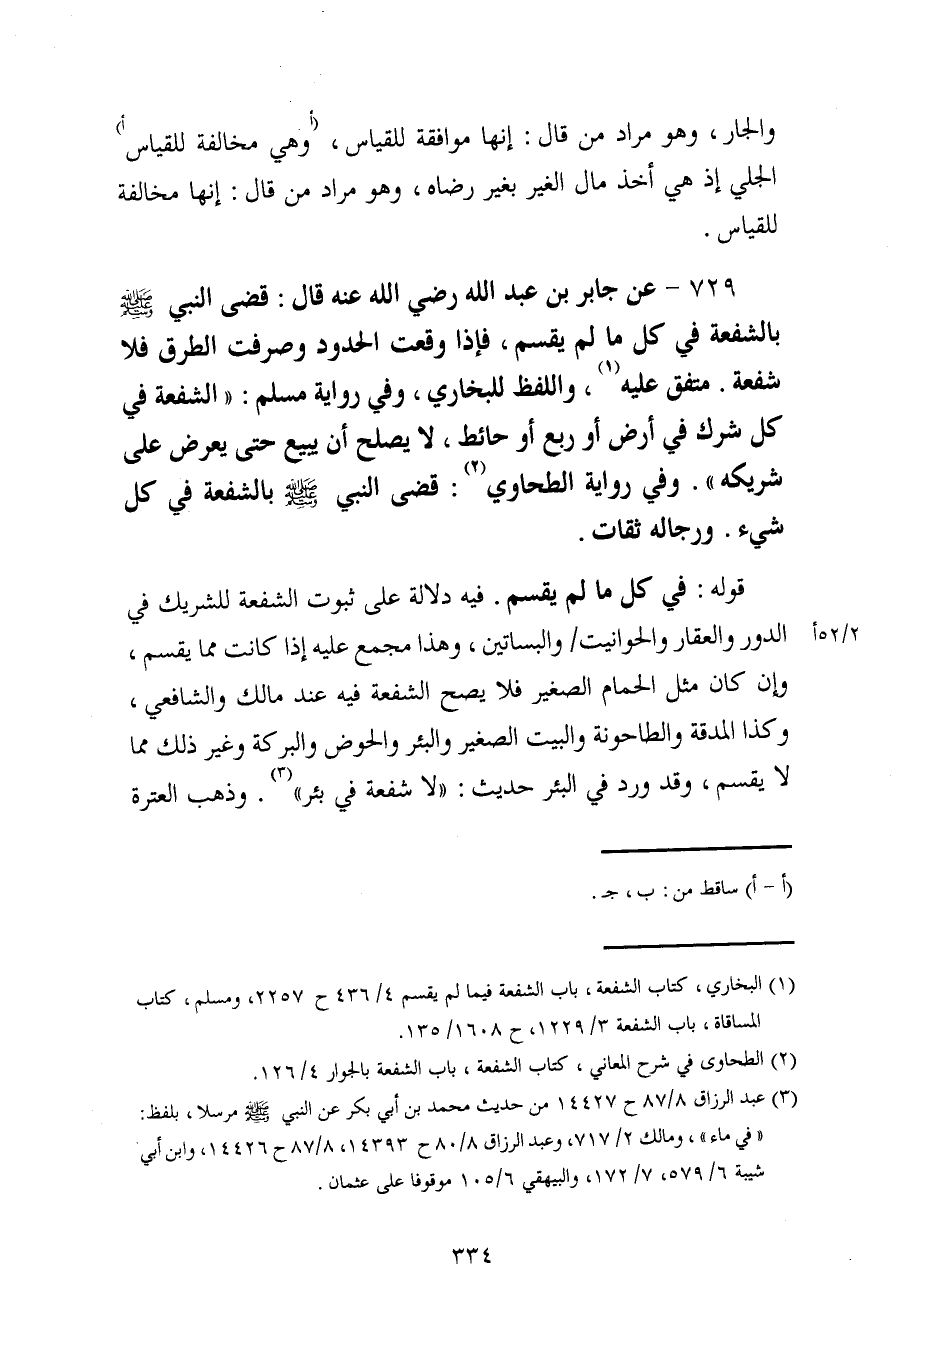 والجار ، وهو مراد من قال : إنها موافقة للقياس ، (أ وهي مخالفة للقياس أ)
الجلي إذ هي أخذ مال الغير بغير رضاه ، وهو مراد من قال : إنها مخالفة
للقياس .
٧٢٩ - عن جابر بن عبد الله رضي الله عنه قال : قضى النبي ﷺ
بالشفعة في كل ما لم يقسم ، فإذا وقعت الحدود وصرفت الطرق فلا
شفعة . متفق عليه(١) ، واللفظ للبخاري ، وفي رواية مسلم : « الشفعة في
كل شرك في أرض أو ربع أو حائط ، لا يصلح أن يبيع حتى يعرض على
شريكه » . وفي رواية الطحاوي(٢) : قضى النبي ﷺ بالشفعة في كل
شيء . ورجاله ثقات .
قوله : في كل ما لم يقسم . فيه دلالة على ثبوت الشفعة للشريك في
الدور والعقار والحوانيت/ والبساتين ، وهذا مجمع عليه إذا كانت مما يقسم ، ٥٢/٢أ
وإن كان مثل الحمام الصغير فلا يصح الشفعة فيه عند مالك والشافعي ،
وكذا المدقة والطاحونة والبيت الصغير والبئر والحوض والبركة وغير ذلك مما
لا يقسم ، وقد ورد في البئر حديث : «لا شفعة في بئر»(٣) . وذهب العترة
(أ - أ) ساقط من : ب ، جـ .
(١) البخاري ، كتاب الشفعة ، باب الشفعة فيما لم يقسم ٤/ ٤٣٦ ح ٢٢٥٧، ومسلم ، كتاب
المساقاة ، باب الشفعة ٣/ ١٢٢٩، ح ١٦٠٨/ ١٣٥.
(٢) الطحاوى في شرح المعاني ، كتاب الشفعة ، باب الشفعة بالجوار ٤/ ١٢٦.
(٣) عبد الرزاق ٨/ ٨٧ ح ١٤٤٢٧ من حديث محمد بن أبي بكر عن النبي ﷺ مرسلا ، بلفظ:
« في ماء» ، ومالك ٢/ ٧١٧، وعبد الرزاق ٨/ ٨٠ ح ١٤٣٩٣، ٨/ ٨٧ ح ١٤٤٢٦، وابن أبي
شيبة ٦/ ٥٧٩، ٧/ ١٧٢، والبيهقي ٦/ ١٠٥ موقوفا على عثمان .
٣٣٤